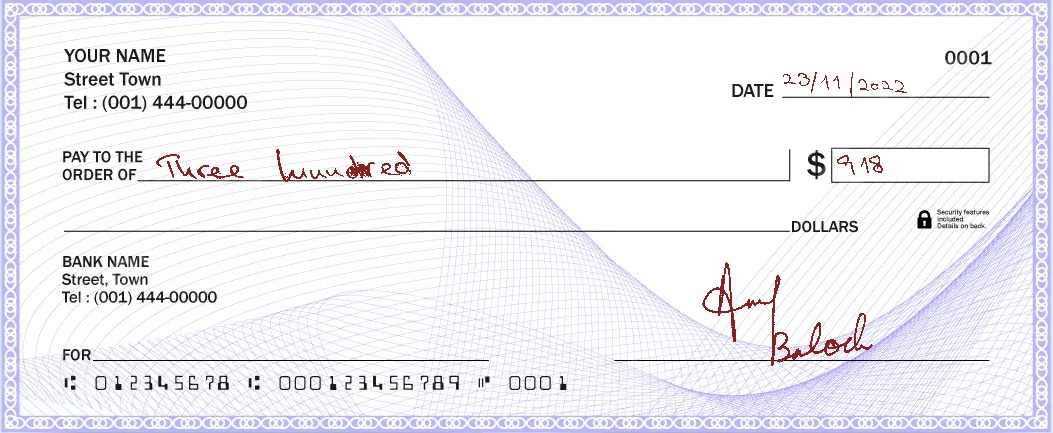 YOUR NAME
0001
Street Town
DATE 23/11/2022
Tel : (001) 444-00000
PAY TO THE
ORDER OF Three hundred
$ 918
DOLLARS
Security features
included.
Details on back.
BANK NAME
Street, Town
Tel : (001) 444-00000
Baloch
FOR
⑆ 012345678 ⑆ 000123456789 ⑈ 0001